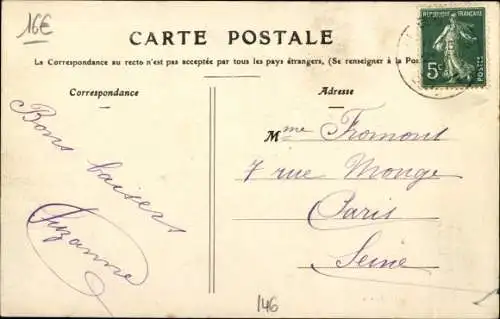 16€
CARTE POSTALE
La Correspondance au recto n'est pas acceptée par tous les pays étrangers, (Se renseigner à la Pos
RÉPUBLIQUE FRANÇAISE
5c
POSTES
Correspondance
Adresse
Bons baisers
Suzanne
Mme Fromont
7 rue Monge
Paris
Seine
146